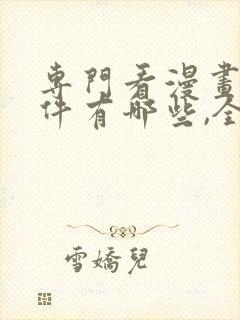 專門看漫畫
件有哪些,全
雪嬌兒